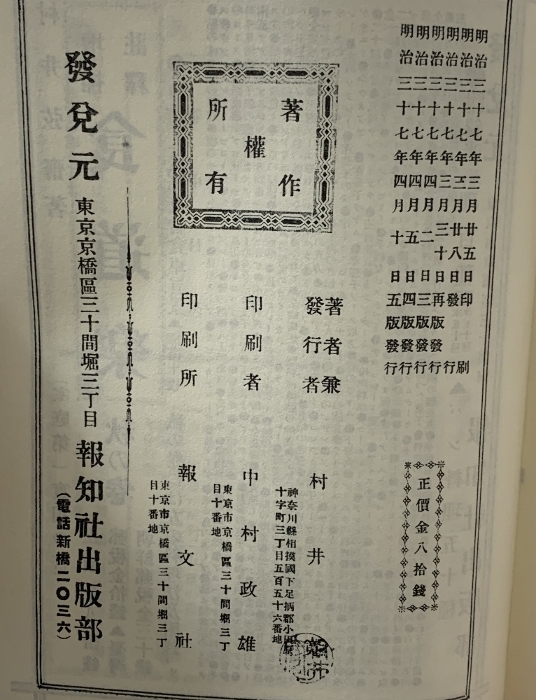 明治三十七年三月廿五日印刷
明治三十七年三月廿八日發行
明治三十七年三月三十日再版發行
明治三十七年四月二日三版發行
明治三十七年四月五日四版發行
明治三十七年四月十日五版發行
正價金八拾錢
著作
權
所有
著者兼
發行者
神奈川縣相摸國下足柄郡小田原
十字町三丁目五百五十六番地
村井
印刷者
東京市京橋區三十間堀三丁
目十番地
中村政雄
印刷所
東京市京橋區三十間堀三丁
目十番地
報文社
發兌元 東京京橋區三十間堀三丁目 報知社出版部
(電話新橋二〇三六)